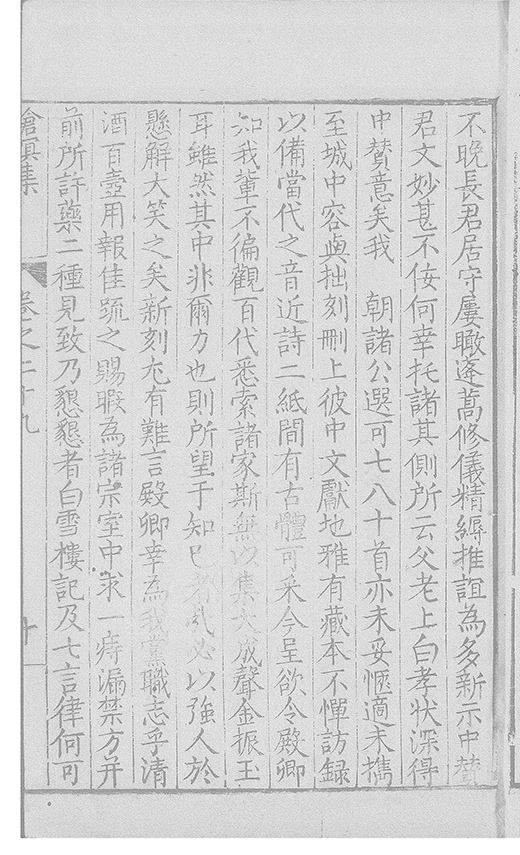 不晚長君居守屢瞰蓬蒿修儀精縟推誼為多新示中贊
君文妙甚不佞何幸托諸其側所云父老上白孝狀深得
中贊意矣我　朝諸公選可七八十首亦未妥愜適未擕
至城中容與拙刻刪上彼中文獻地雅有藏本不憚訪録
以備當代之音近詩二紙間有古體可采今呈欲令殿卿
知我軰不徧觀百代悉索諸家斯無以集大成聲金振玉
耳雖然其中非爾力也則所望于知巳者氣必以強人於
懸解大笑之矣新刻尤有難言殿卿幸為我黨職志乎清
酒百壺用報佳䟽之賜暇為諸宗室中求一痔漏禁方并
前所許藥二種見致乃懇懇者白雪樓記及七言律何可
滄溟集　卷之二十九　十